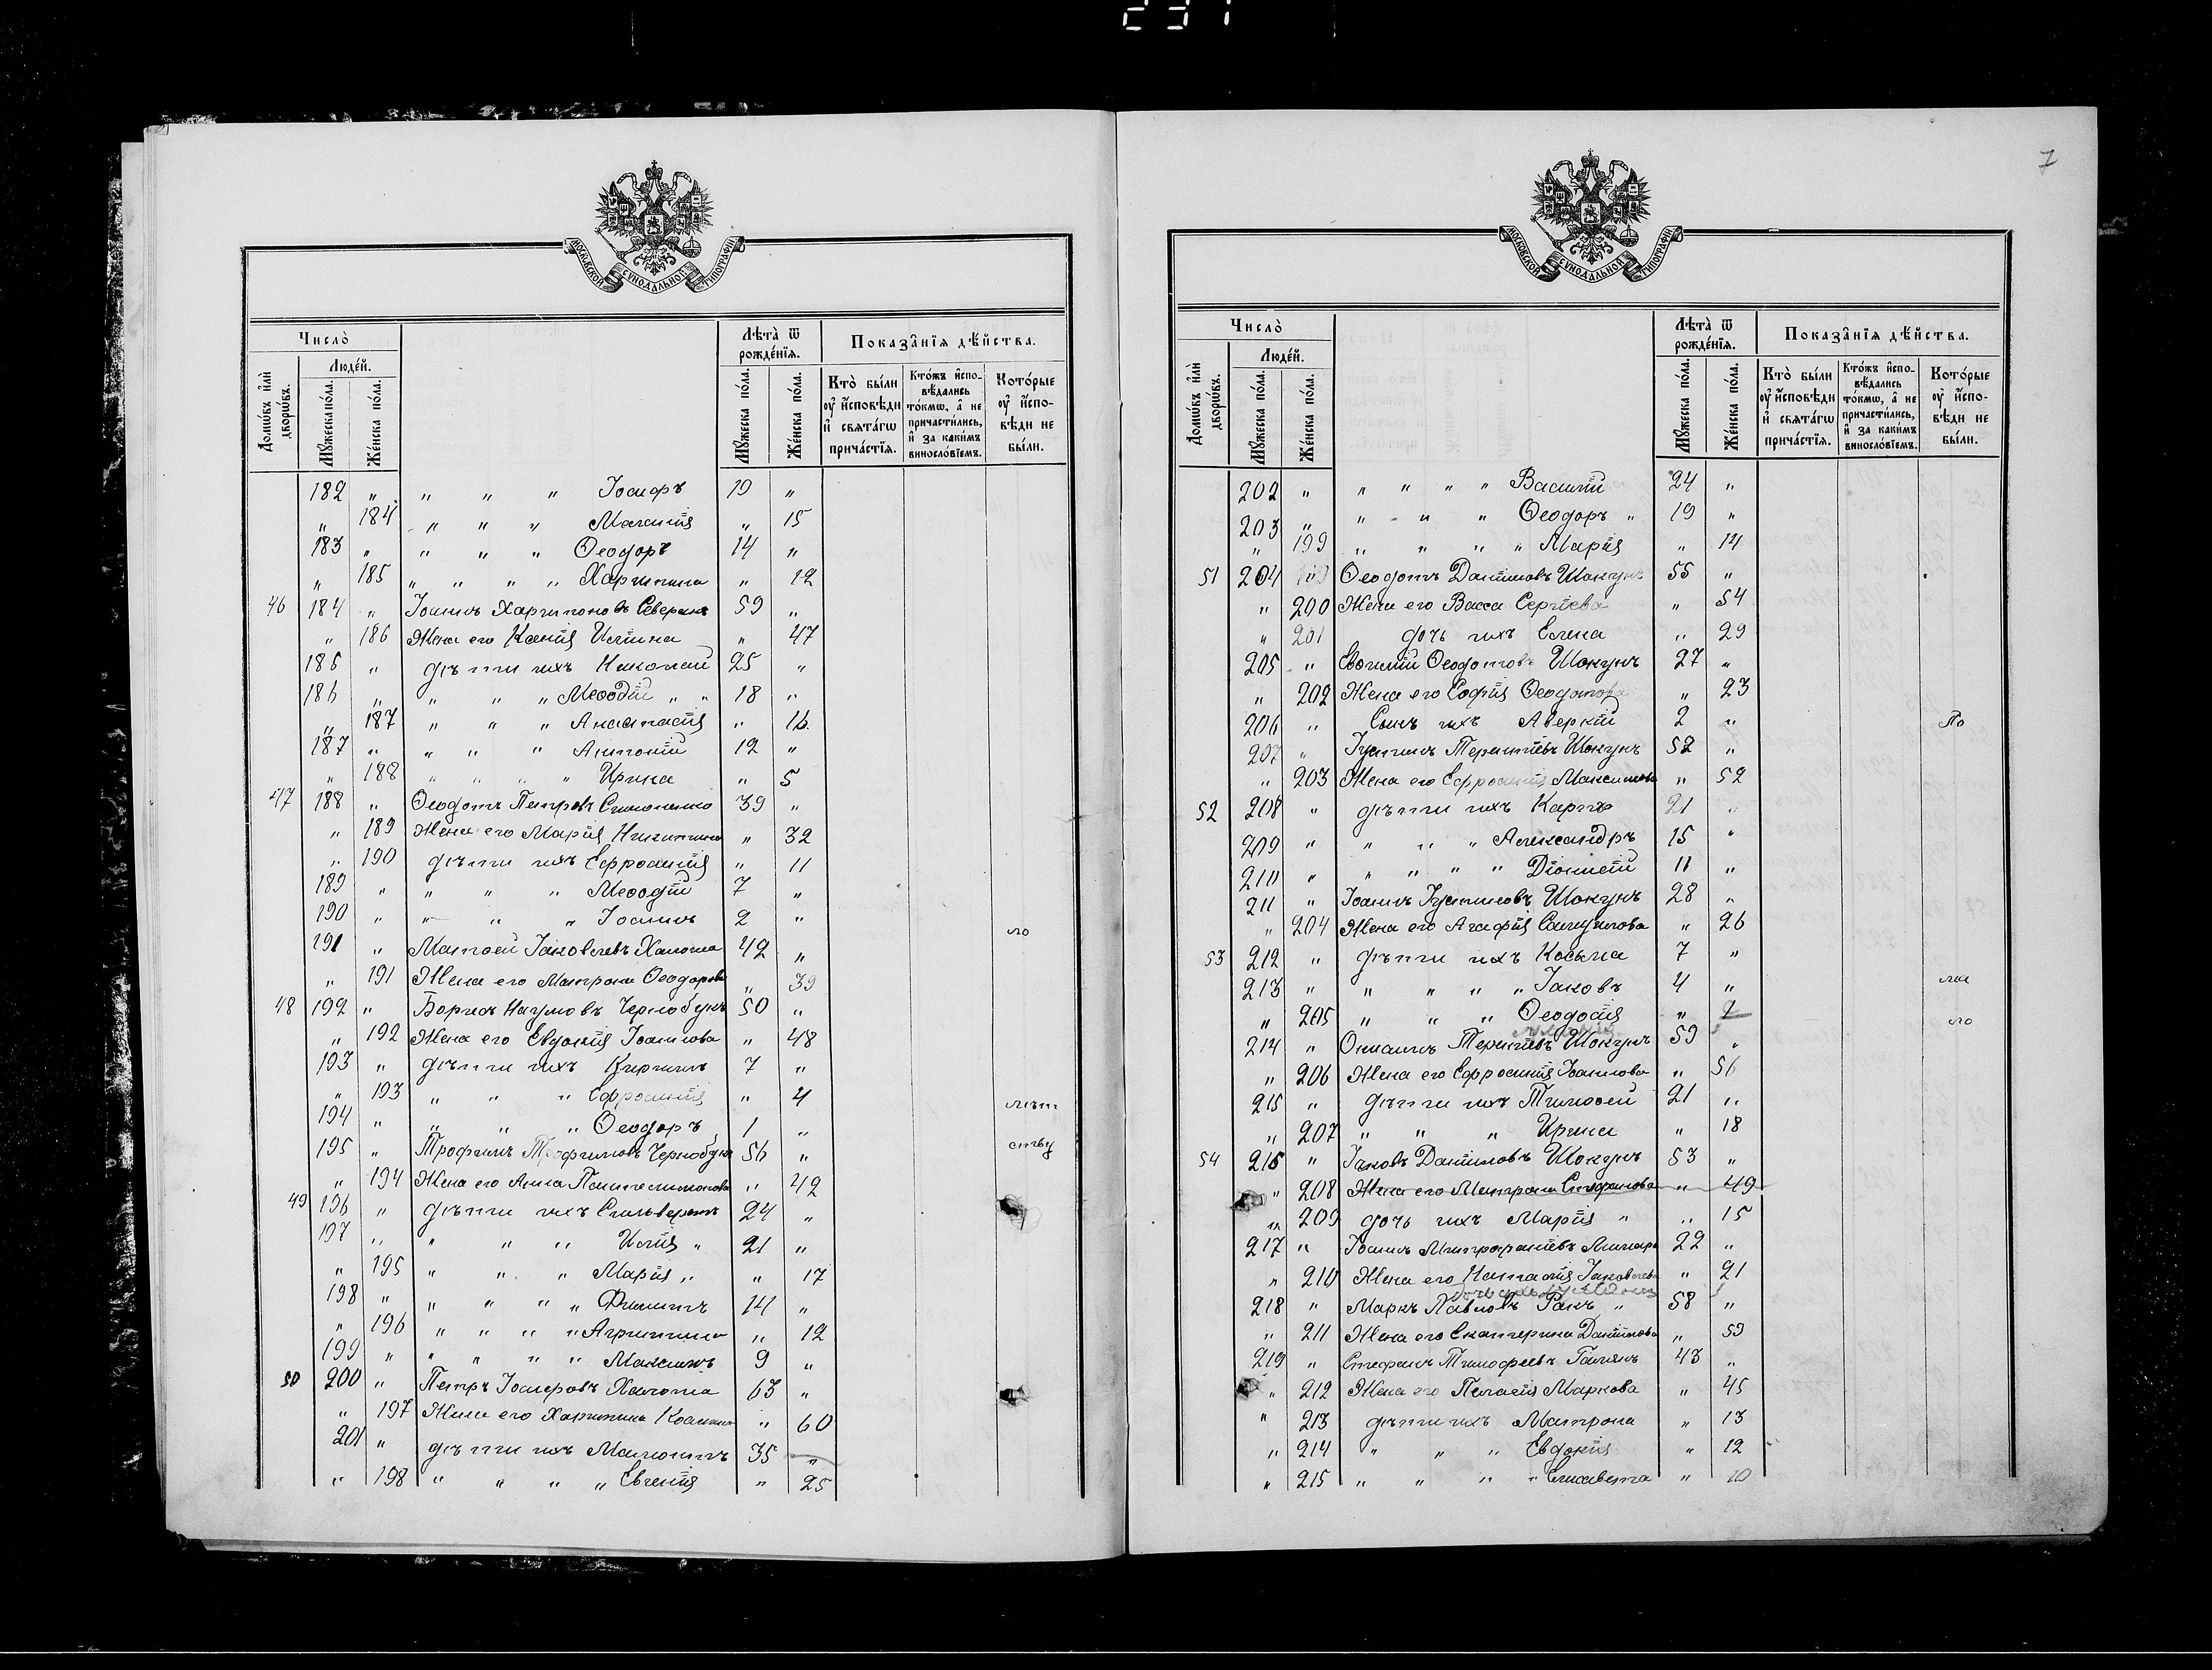 237
МОСКОВСКОЙ СѴНОДАЛЬНОЙ ТИПОГРАФІИ
Число̀
Люде́й.
Домѡ́въ и҆лѝ дворѡ́въ.
Мꙋ́жеска по́ла.
Же́нска по́ла.
Лѣ́та ѿ рожде́нїѧ.
Мꙋ́жеска по́ла.
Же́нска по́ла.
Показа̂нїѧ дѣ́йства.
Кто̀ бы́ли ᲂу҆ и҆́сповѣди и҆ свѧта́гѡ прича́стїѧ.
Кто́жъ и҆спо-вѣ́дались то́кмѡ, а҆ не причасти́лись, и҆ за каки́мъ виносло́вїемъ.
Кото́рые ᲂу҆ и҆́спо-вѣди не бы́ли.
182 " " " " Іосифъ 19 "
" 184 " " " Меланія " 15
183 " " " " Ѳеодоръ 14 "
" 185 " " " " Харитина " 12
46 184 " Іоаннъ Харитоновъ Северинъ 59 "
" 186 Жена его Ксенія Илiина " 47
185 " дѣти ихъ Николай 25 "
186 " " " " Меѳодій " " 18 "
" 187 " " " Анастасія " 16
187 " " " " Антоній 12 "
" 188 " " " " Ирина " 5
47 188 " Ѳеодотъ Петровъ Симоненко 39 "
" 189 Жена его Марія Никитина " 32
" 190 дѣти ихъ Ефросинія " 11
189 " " " " Меѳодій 7 "
190 " " " " Іоаннъ 2 " ло
191 " Матѳей Іаковлевъ Халоша 42 "
" 191 Жена его Матрона Ѳеодорова " 39
48 192 " Борисъ Наумовъ Чернобукъ 50 "
" 192 Жена его Евдокія Іоаннова " 48
193 " дѣти ихъ Кириллъ 7 "
" 193 " " " Ефросинія " 4 лѣт
194 " " " " Ѳеодоръ 1 "
195 " Трофимъ Трофимовъ Чернобукъ 56 " ству
" 194 Жена его Анна Пантелимонова " 42
49 196 " дѣти ихъ Сильвестръ 24 "
197 " " " " Илія " 21 "
" 195 " " " Марія " " 17
198 " " " " " Филиппъ 14 "
" 196 " " " " Агриппина " 12
199 " " " " " Максимъ 9 "
50 200 " Петръ Іосифовъ Халоша 63 "
" 197 Жена его Харитина " 60
201 " дѣти ихъ 35 "
" 198 " " " " Евгенія " 25
7
МОСКОВСКОЙ СѴНОДАЛЬНОЙ ТИПОГРАФІИ
Число̀
Люде́й.
Домѡ́въ и҆лѝ дворѡ́въ.
Мꙋ́жеска по́ла.
Же́нска по́ла.
Лѣ́та ѿ рожде́нїѧ.
Мꙋ́жеска по́ла.
Же́нска по́ла.
Показа̂нїѧ дѣ́йства.
Кто̀ бы́ли ᲂу҆ и҆́сповѣди и҆ свѧта́гѡ прича́стїѧ.
Кто́жъ и҆спо-вѣ́дались то́кмѡ, а҆ не причасти́лись, и҆ за каки́мъ виносло́вїемъ.
Кото́рые ᲂу҆ и҆́спо-вѣди не бы́ли.
202 " " " " " Василій 24 "
203 " " " " Ѳеодоръ " 19 "
" 199 " " " " Марія " 14
51 204 " Ѳеодотъ Даніиловъ Шокунъ 55 "
" 200 Жена его Васса Сергіева " 54
" 201 дочь ихъ Елена " 29
205 " Евѳимій Ѳеодотовъ Шокунъ 27 "
" 202 Жена его Софія Ѳеодотова " 23
206 " Сынъ ихъ Аверкій 2 " По
207 " Іустинъ Терентіевъ Шокунъ 52 "
" 203 Жена его Ефросинія Максимова " 52
52 208 " дѣти ихъ Карпъ 21 "
209 " " " " Александръ 15 "
210 " " " " " Діонисій 11 "
211 " Іоаннъ Іустиновъ Шокунъ 28 "
" 204 Жена его Агафія Самуилова " 26
53 212 " дѣти ихъ Косьма 7 "
213 " " " " " Іаковъ 4 " ма
" 205 " " " Ѳеодосія " ло
214 " Терентіевъ Шокунъ 59 "
" 206 Жена его Ефросинія Іоаннова " 56
215 " дѣти ихъ Тимоѳей 21 "
" 207 " " " Ирина " 18
54 216 " Іаковъ Даніиловъ Шокунъ 53 "
" 208 Жена его Матрона Стефанова " 49
" 209 дочь ихъ Марія " " 15
217 " Іоаннъ Митрофаніевъ 22 "
" 210 Жена его Наталія Іаковлева " 21
218 " Маркъ Павловъ Ракъ " 58 "
" 211 Жена его Екатерина Даніилова " 59
219 " Стефанъ Тимофеевъ 43 "
" 212 Жена его Пелагія Маркова " 45
" 213 дѣти ихъ Матрона " 13
" 214 " " " Евдокія " 12
" 215 " " " " Елисавета " 10